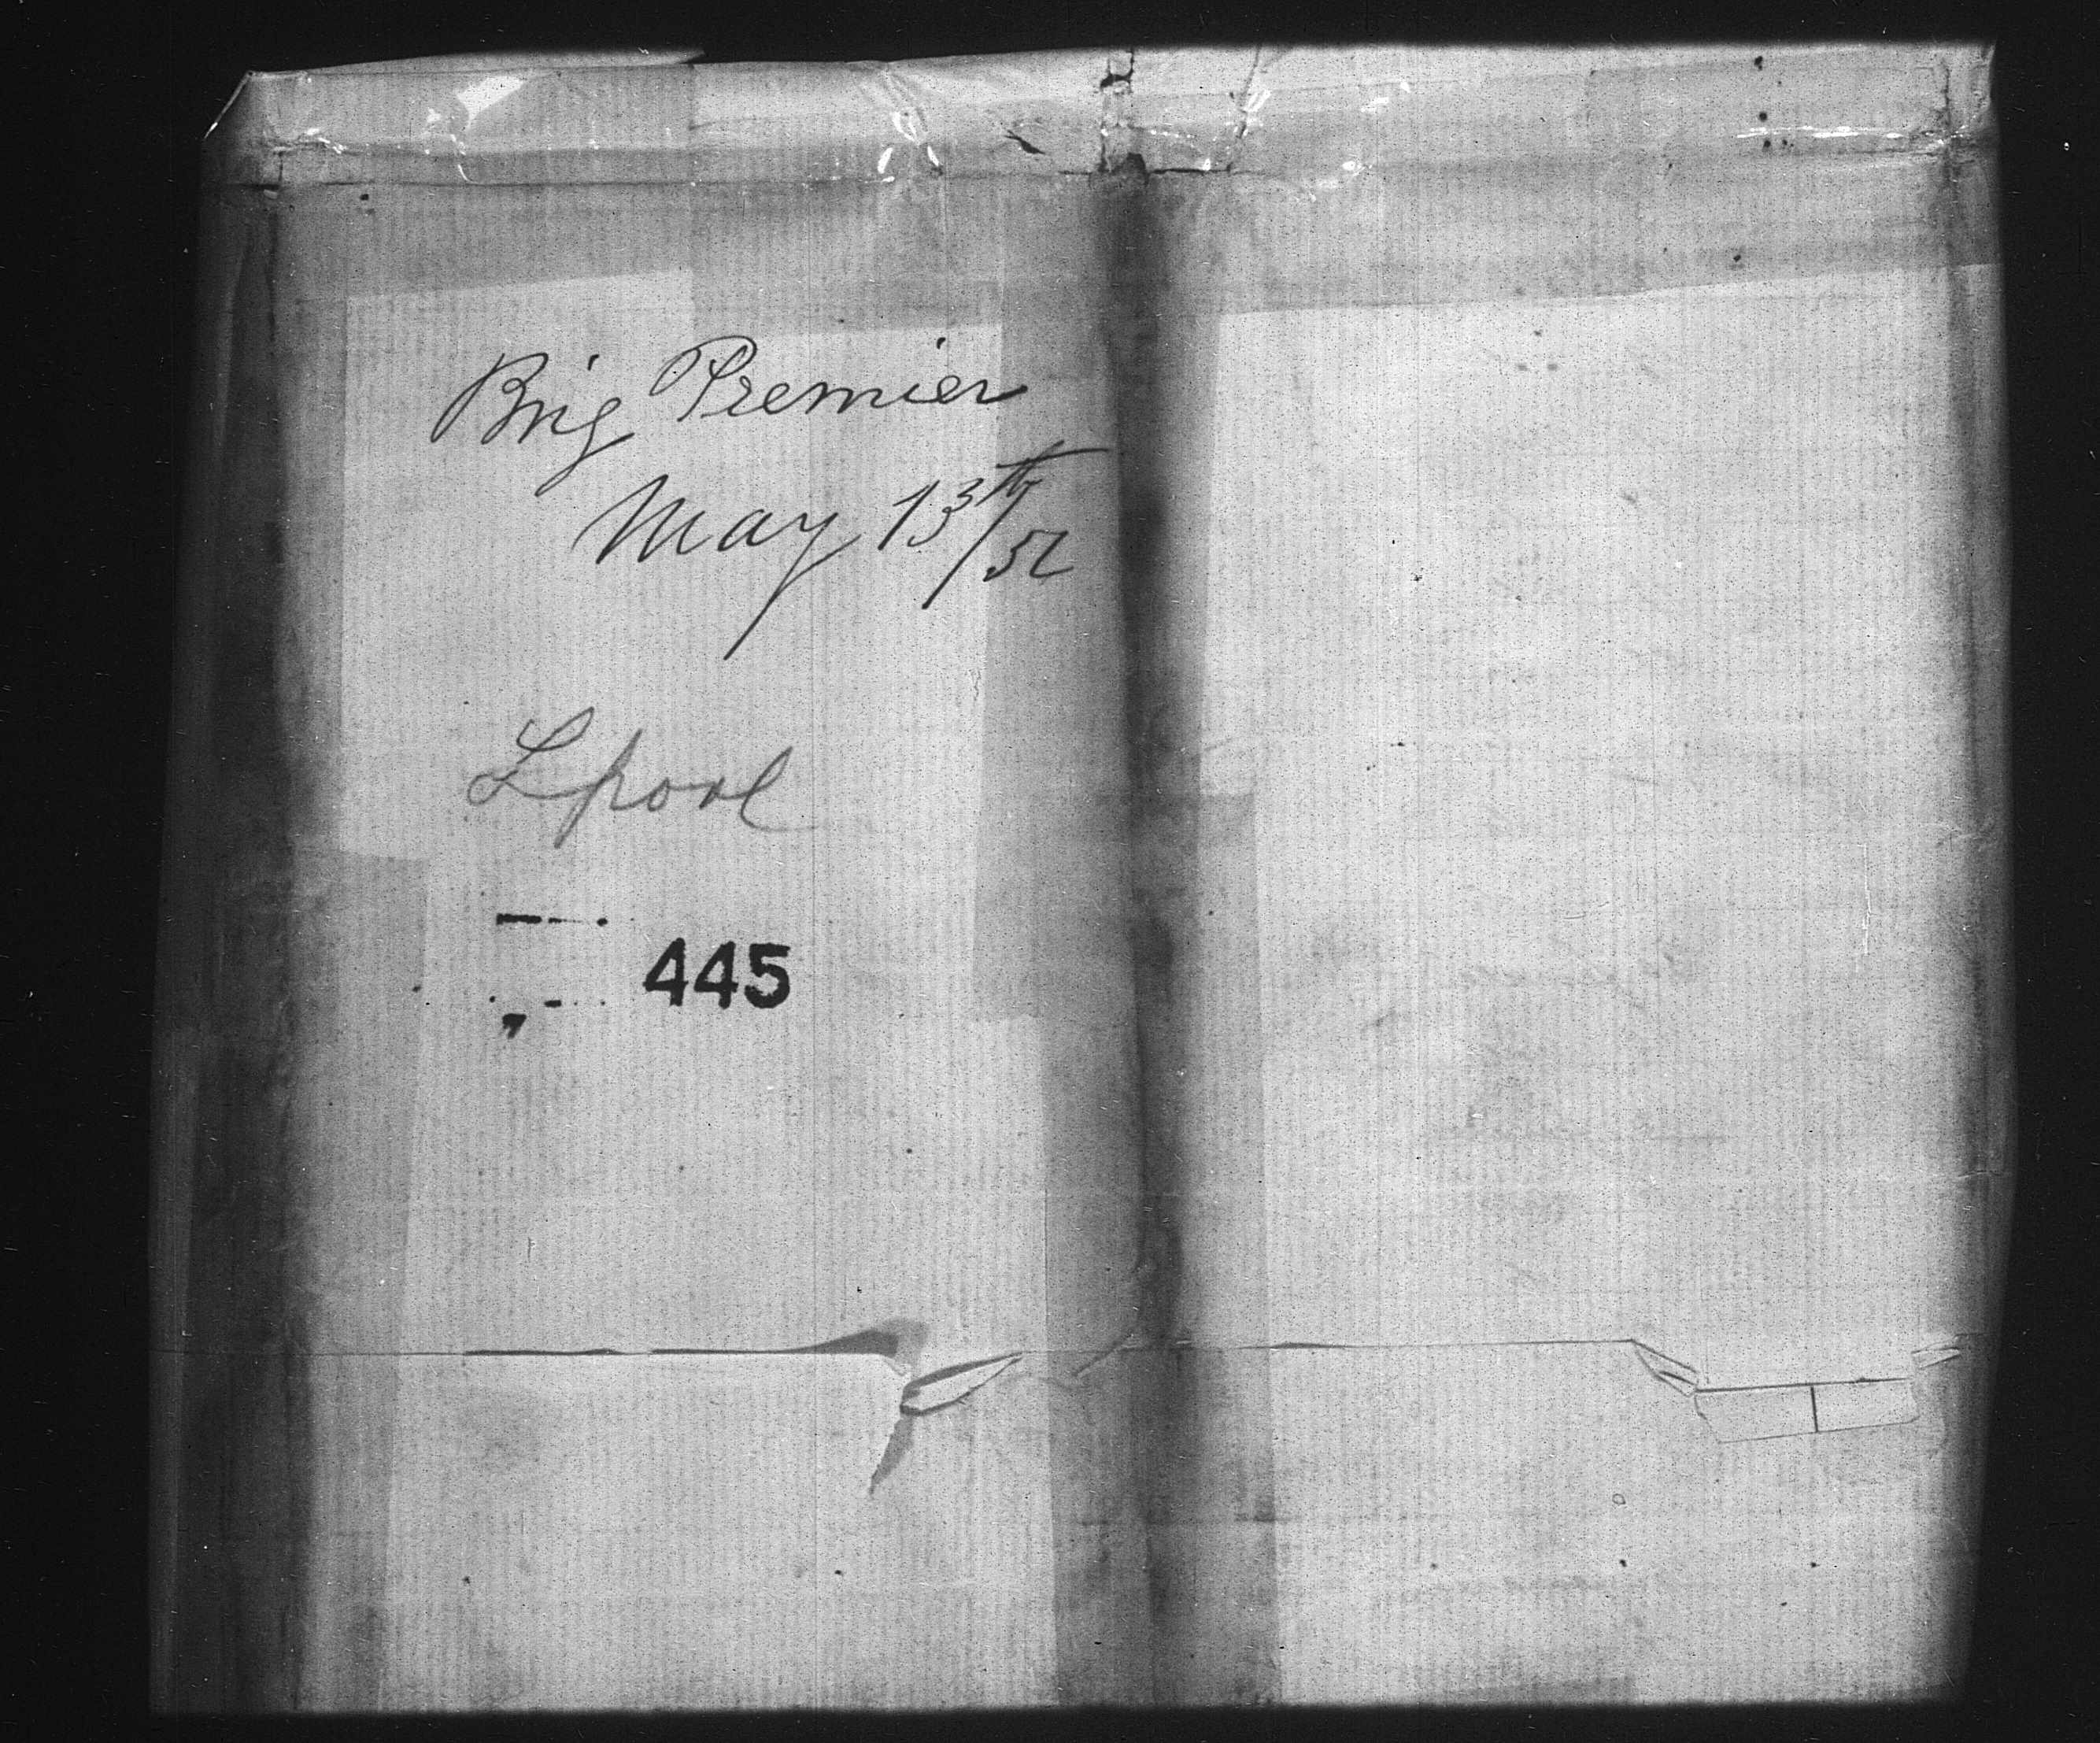 Brig Premier
May 13th/52
Lpool
445